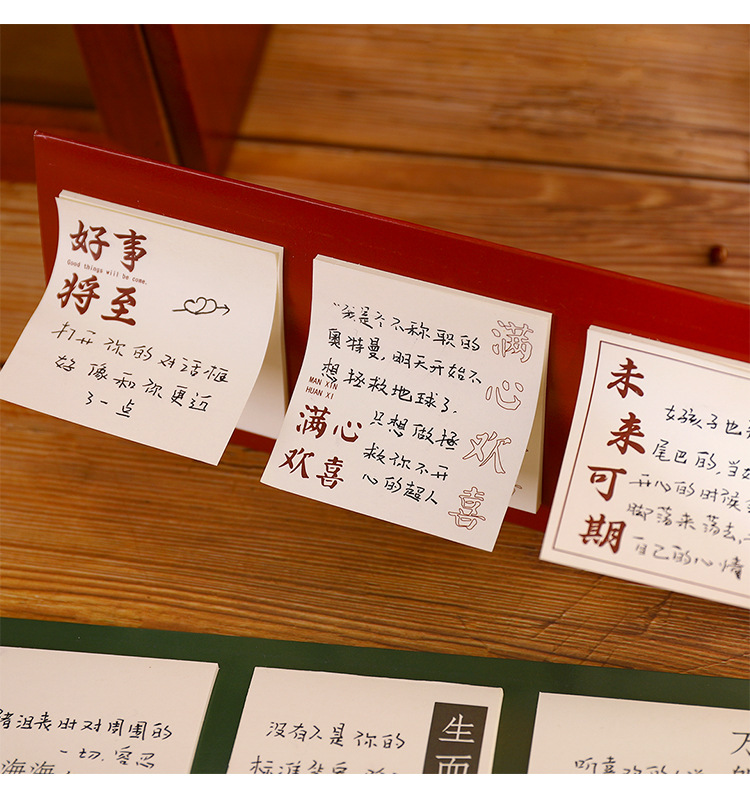 好事
Good things will be come.
将至
打开你的对话框
好像和你更近
了一点
"我是个不称职的
奥特曼,明天开始不
想拯救地球了,
只想做拯
救你不开
心的超人
MAN XIN
HUAN XI
满心
欢喜
满心欢喜
未来可期
女孩子也
尾巴的,当
开心的时候
脚荡来荡去,
自己的心情
时对周围的
一切,容忍
海海
没有人是你的
标准
生而
听喜欢的